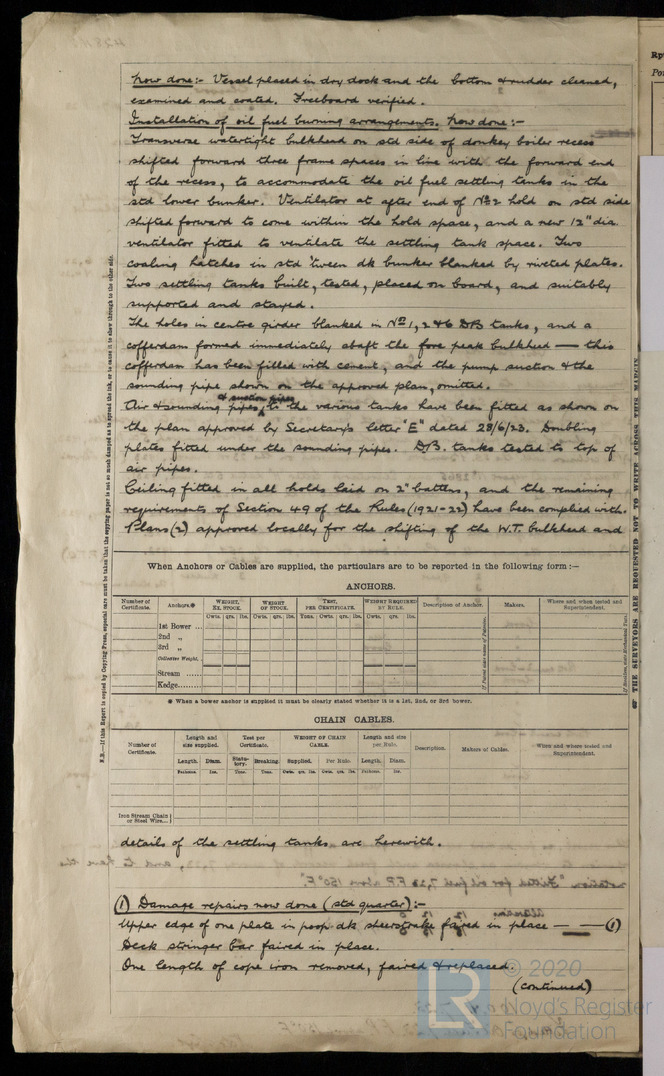 Now done:- Vessel placed in dry dock and the bottom & rudder cleaned,
examined and coated. Freeboard verified.
Installation of oil fuel burning arrangements. Now done:-
Transverse watertight bulkhead on std side of donkey boiler recess
shifted forward three frame spaces in line with the forward end
of the recess, to accommodate the oil fuel settling tanks in the
std lower bunker. Ventilator at after end of No 2 hold on std side
shifted forward to come within the hold space, and a new 12" dia.
ventilator fitted to ventilate the settling tank space. Two
coaling hatches in std 'tween dk bunker blanked by riveted plates.
Two settling tanks built, tested, placed on board, and suitably
supported and stayed.
The holes in centre girder blanked in Nos 1, 2 & 6 DB tanks, and a
cofferdam formed immediately abaft the fore peak bulkhead — this
cofferdam has been filled with cement, and the pump suction & the
sounding pipe shown on the approved plan, omitted.
& suction pipes
Air & sounding pipes to the various tanks have been fitted as shown on
the plan approved by Secretary's letter "E" dated 28/6/23. Doubling
plates fitted under the sounding pipes. D.B. tanks tested to top of
air pipes.
Ceiling fitted in all holds laid on 2" battens, and the remaining
requirements of Section 49 of the Rules (1921-22) have been complied with.
Plans (2) approved locally for the shifting of the W.T. bulkhead and
When Anchors or Cables are supplied, the particulars are to be reported in the following form:—
ANCHORS.
Number of Certificate. Anchors.* WEIGHT, EX. STOCK. WEIGHT OF STOCK. TEST, PER CERTIFICATE. WEIGHT REQUIRED BY RULE. Description of Anchor. Makers. Where and when tested and Superintendent.
Cwts. qrs. lbs. Cwts. qrs. lbs. Tons. Cwts. qrs. lbs. Cwts. qrs. lbs.
1st Bower ...
2nd „
3rd „
Collective Weight.
Stream ......
Kedge.........
* When a bower anchor is supplied it must be clearly stated whether it is a 1st, 2nd, or 3rd bower.
CHAIN CABLES.
Number of Certificate. Length and size supplied. Test per Certificate. WEIGHT OF CHAIN CABLE. Length and size per Rule. Description. Makers of Cables. When and where tested and Superintendent.
Length. Diam. Statutory. Breaking. Supplied. Per Rule. Length. Diam.
Fathoms. Ins. Tons. Tons. Cwts. qrs. lbs. Cwts. qrs. lbs. Fathoms. Ins.
Iron Stream Chain or Steel Wire...
details of the settling tanks are herewith.
(1) Damage repairs now done (std quarter):-
Upper edge of one plate in poop dk sheerstrake faired in place — (1)
Deck stringer bar faired in place.
One length of cope iron removed, faired & replaced.
(continued)
N.B.—If this Report is copied by Copying Press, especial care must be taken that the copying paper is not so much damped as to spread the ink, or to cause it to show through to the other side.
THE SURVEYORS ARE REQUESTED NOT TO WRITE ACROSS THIS MARGIN
LR
© 2020
Lloyd's Register
Foundation